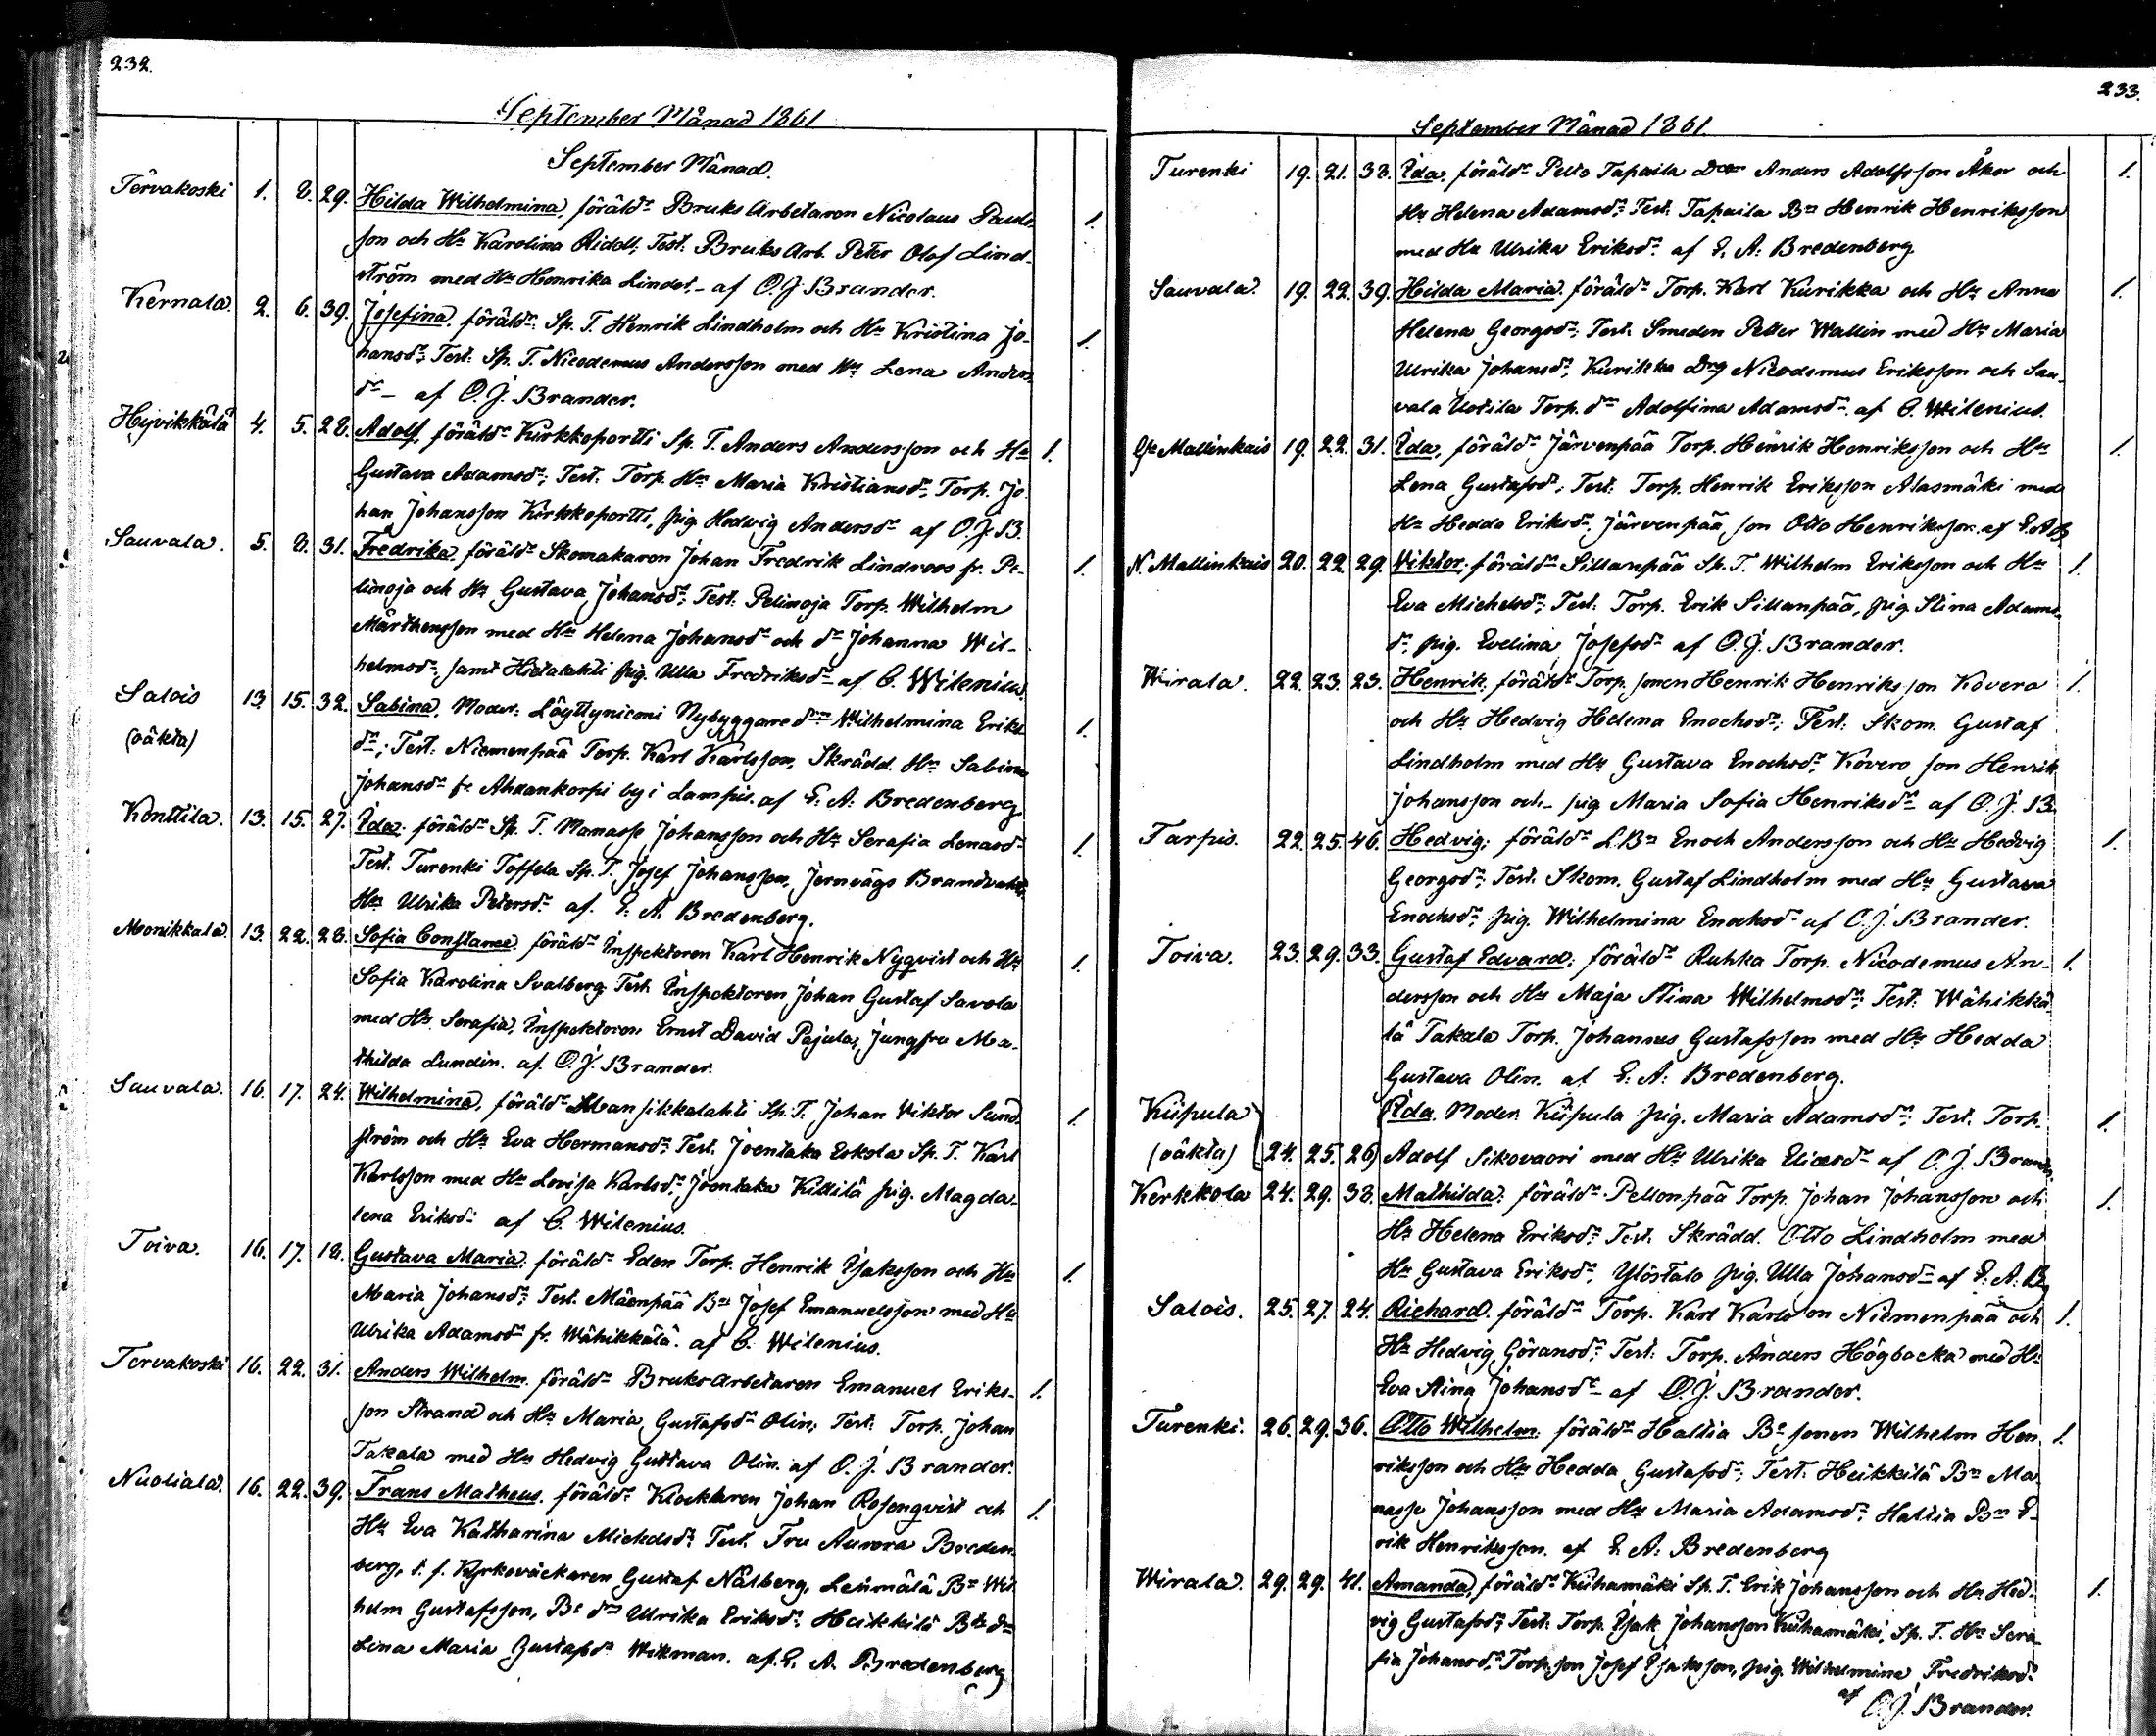 232.
September Månad 1861
September Månad.
Tervakoski 1. 8. 29. Hilda Wilhelmina, föräldr Bruks Arbetaren Nicolaus Pauls- 1.
son och Hu Karolina Ridell; Test: Bruks Arb. Peter Olof Lind-
ström med Hu Henrika Lindst,- af O. J. Brander.
Kernala. 2. 6. 39. Josefina, föräldr: Sp. T. Henrik Lindholm och Hu Kristina Jo- 1.
hansdr; Test: Sp. T. Nicodemus Andersson med Hu Lena Anders
dr - af O. J. Brander.
Hyvikkälä 4. 5. 28. Adolf, föräldr Kirkkoportti Sp. T. Anders Andersson och Hu 1.
Gustava Adamsdr; Test. Torp. Hu Maria Kristiansdr, Torp. Jo
han Johansson Kirkkoportti, pig. Hedvig Andersdr af O. J. B.
Sauvala. 5. 8. 31. Fredrika, föräldr Skomakaren Johan Fredrik Lindroos fr. Pe- 1.
linoja och Hu Gustava Johansdr; Test: Pelinoja Torp. Wilhelm
Mårthensson med Hu Helena Johansdr och dr Johanna Wil-
helmsdr, samt Hietalahti pig. Ulla Fredriksdr af C. Wilenius.
Salois 13. 15. 32. Sabina, Moder: Löyttyniemi Nybyggare dr Wilhelmina Eriks- 1.
(oäkta) dr; Test: Niemenpää Torp. Karl Karlsson, Skrädd. Hu Sabina
Johansdr fr. Ahdankorpi by i Lampis. af E. A. Bredenberg
Konttila. 13. 15. 27. Ida; föräldr Sp. T. Manasse Johansson och Hu Serafia Lenasdr 1.
Test. Turenki Toffela Sp. T. Josef Johansson, Jernvägs Brandvakts
Hu Ulrika Petersdr af. E. A. Bredenberg.
Monikkala. 13. 22. 28. Sofia Constance, föräldr Inspektoren Karl Henrik Nyqvist och Hu 1.
Sofia Karolina Svalberg; Test: Inspektoren Johan Gustaf Savola
med Hu Serafia, Inspektoren Ernst David Pajula, Jungfru Ma-
thilda Lundin. af O. J. Brander.
Sauvala. 16. 17. 24. Wilhelmina, föräldr Sikkalahti Sp. T. Johan Viktor Sund- 1.
ström och Hu Eva Hermansdr; Test. Joentaka Eskola Sp. T. Karl
Karlsson med Hu Lovisa Karlsdr, Joentaka Killilä pig. Magda-
lena Eriksdr af C. Wilenius.
Toiva. 16. 17. 18. Gustava Maria, föräldr Eden Torp. Henrik Isaksson och Hu 1.
Maria Johansdr; Test. Mäenpää Bn Josef Emanuelsson med Hu
Ulrika Adamsdr fr. Wähikkälä. af C. Wilenius.
Tervakoski 16. 22. 31. Anders Wilhelm. föräldr Bruksarbetaren Emanuel Eriks- 1.
son Strand och Hu Maria Gustafsdr Olin; Test: Torp. Johan
Takala med Hu Hedvig Gustava Olin. af O. J. Brander.
Nuoliala. 16. 22. 39. Frans Matheus. föräldr Klockaren Johan Rosenqvist och 1.
Hu Eva Katharina Mickelsdr; Test. Fru Aurora Breden-
berg, t. f. Kyrkoväckaren Gustaf Nålberg, Leinmälä Bn Wil-
helm Gustafsson, Be dr Ulrika Eriksdr, Heikkilä Be dr
Lena Maria Gustafsdr Wikman. af. E. A. Bredenberg
233.
September Månad 1861
Turenki 19. 21. 38. Ida, föräldr Pelto Tapaila Drg Anders Adolfsson Åker och 1.
Hu Helena Adamsdr; Test. Tapaila Bn Henrik Henriksson
med Hu Ulrika Eriksdr af E. A. Bredenberg
Sauvala. 19. 22. 39. Hilda Maria, föräldr Torp. Karl Kurikka och Hu Anna 1.
Helena Georgsdr; Test. Smeden Petter Wallin med Hu Maria
Ulrika Johansdr, Kurikka Drg Nicodemus Eriksson och Sau-
vala Uotila Torp. dr Adolfina Adamsdr. af C. Wilenius.
Mallinkais 19. 22. 31. Ida, föräldr Järvenpää Torp. Henrik Henriksson och Hu 1.
Lena Gustafsdr; Test. Torp. Henrik Eriksson Alasmäki med
Hu Hedda Eriksdr, Järvenpää son Otto Henriksson. af E. A. B.
N. Mallinkais 20. 22. 29. Viktor; föräldr Sillanpää Sp. T. Wilhelm Eriksson och Hu 1.
Eva Michelsdr; Test: Torp. Erik Sillanpää, pig. Stina Adams-
dr, pig. Evelina Josefsdr af O. J. Brander.
Wirala. 22. 23. 23. Henrik; föräldr Torp. sonen Henrik Henriksson Kovera 1.
och Hu Hedvig Helena Enochsdr; Test: Skom. Gustaf
Lindholm med Hu Gustava Enochsdr, Kovero son Henrik
Johansson och - pig Maria Sofia Henriksdr af O. J. B.
Tarpis. 22. 25. 46. Hedvig; föräldr L.Bn Enoch Andersson och Hu Hedvig 1.
Georgsdr; Test. Skom. Gustaf Lindholm med Hu Gustava
Enochsdr, pig. Wilhelmina Enochsdr af O. J. Brander.
Toiva. 23. 29. 33. Gustaf Edvard; föräldr Ruhka Torp. Nicodemus An- 1.
dersson och Hu Maja Stina Wilhelmsdr; Test: Wähikkä-
lä Takala Torp. Johannes Gustafsson med Hu Hedda
Gustava Olin. af E. A. Bredenberg.
Kiipula Ida. Moder. Kiipula pig. Maria Adamsdr; Test. Torp. 1.
(oäkta) 24. 25. 26) Adolf Sikovuori med Hu Ulrika Eliasdr af O. J. Brander
Kerkkola 24. 29. 38. Mathilda; föräldr Pellonpää Torp. Johan Johansson och 1.
Hu Helena Eriksdr; Test. Skrädd. Otto Lindholm med
Hu Gustava Eriksdr, Ylöstalo pig. Ulla Johansdr af E. A. B.
Salois. 25. 27. 24. Richard, föräldr Torp. Karl Karlsson Niemenpää och 1.
Hu Hedvig Göransdr; Test: Torp. Anders Högbacka med Hu
Eva Stina Johansdr - af O. J. Brander.
Turenki. 26. 29. 36. Otto Wilhelm; föräldr Haltia Be sonen Wilhelm Hen- 1.
riksson och Hu Hedda Gustafsdr; Test: Heikkilä Bn Ma-
nasse Johansson med Hu Maria Adamsdr, Haltia Bn E-
rik Henriksson. af E. A. Bredenberg
Wirala. 29. 29. 41. Amanda, föräldr Kuhamäki Sp. T. Erik Johansson och Hu Hed- 1.
vig Gustafsdr; Test: Torp. Isak Johansson Kuhamäki, Sp. T. Hu Sera-
fia Johansdr, Torp. son Josef Isaksson, pig. Wilhelmina Fredriksdr
af O. J. Brander.